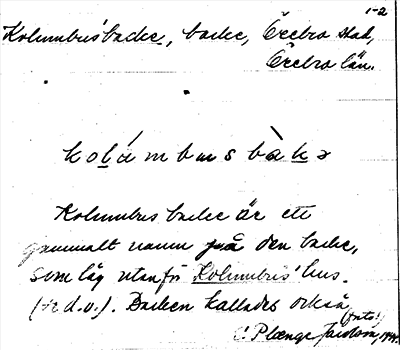 1-2
Kolumbus' backe, backe, Örebro stad,
Örebro län.
kolúmbus bàkə
Kolumbus backe är ett
gammalt namn på den backe,
som låg utanför Kolumbus' hus.
d.v.). Backen kallades också